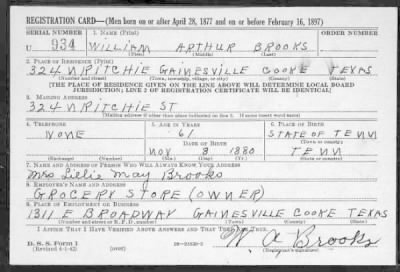 REGISTRATION CARD—(Men born on or after April 28, 1877 and on or before February 16, 1897)
SERIAL NUMBER 1. NAME (Print) ORDER NUMBER
U 934 WILLIAM ARTHUR BROOKS
(First) (Middle) (Last)
2. PLACE OF RESIDENCE (Print)
324 N RITCHIE GAINESVILLE COOKE TEXAS
(Number and street) (Town, township, village, or city) (County) (State)
[THE PLACE OF RESIDENCE GIVEN ON THE LINE ABOVE WILL DETERMINE LOCAL BOARD
JURISDICTION; LINE 2 OF REGISTRATION CERTIFICATE WILL BE IDENTICAL]
3. MAILING ADDRESS
324 N RITCHIE ST
[Mailing address if other than place indicated on line 2. If same insert word same]
4. TELEPHONE 5. AGE IN YEARS 6. PLACE OF BIRTH
NONE 61 STATE OF TENN
DATE OF BIRTH (Town or county)
NOV 8 1880 TENN
(Exchange) (Number) (Mo.) (Day) (Yr.) (State or country)
7. NAME AND ADDRESS OF PERSON WHO WILL ALWAYS KNOW YOUR ADDRESS
Mrs Lillie May Brooks
8. EMPLOYER'S NAME AND ADDRESS
GROCERY STORE (OWNER)
9. PLACE OF EMPLOYMENT OR BUSINESS
1311 E BROADWAY GAINESVILLE COOKE TEXAS
(Number and street or R. F. D. number) (Town) (County) (State)
I AFFIRM THAT I HAVE VERIFIED ABOVE ANSWERS AND THAT THEY ARE TRUE.
D. S. S. Form 1 W. A. Brooks
(Revised 4-1-42) (over) (Registrant's signature)